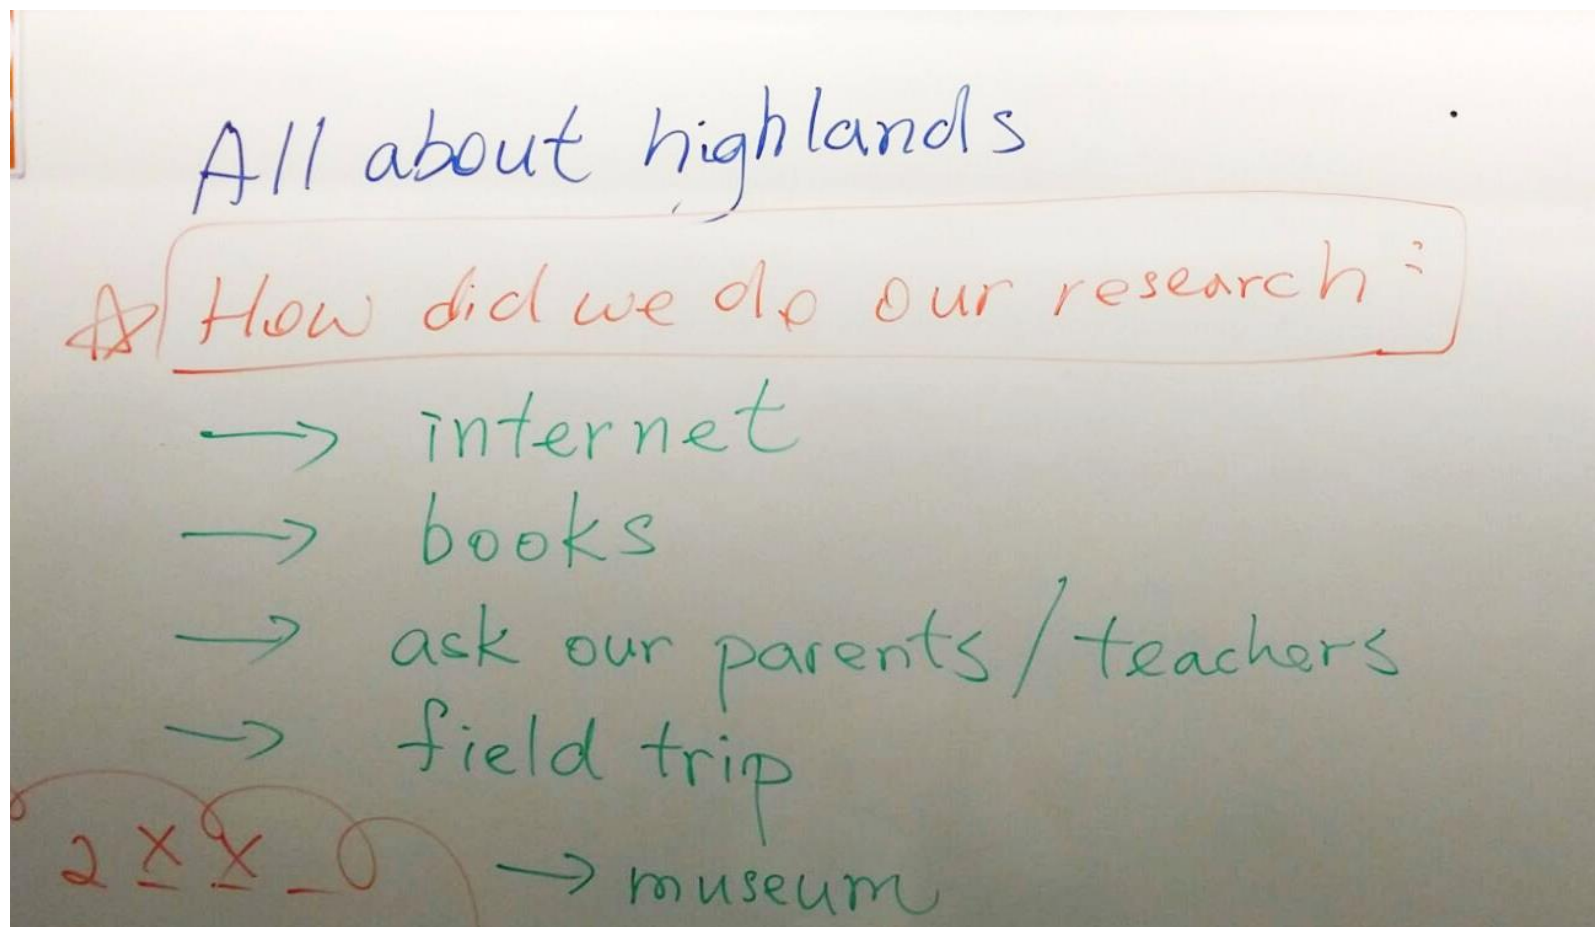 All about highlands
☆ How did we do our research:
→ internet
→ books
→ ask our parents/teachers
→ field trip
→ museum
2 X X _